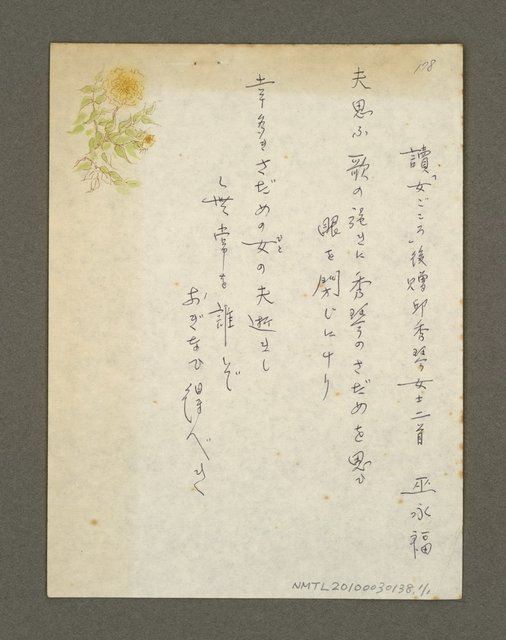 178
讀「女ごころ」後贈邱秀琴女士二首　巫永福
夫思ふ歌の強さに秀琴のさだめを思ひ
眼を閉じにけり
幸多きさだめの女の夫逝きし
無常を誰ぞ
おぎなひ得べき
NMTL20100030138.1/1